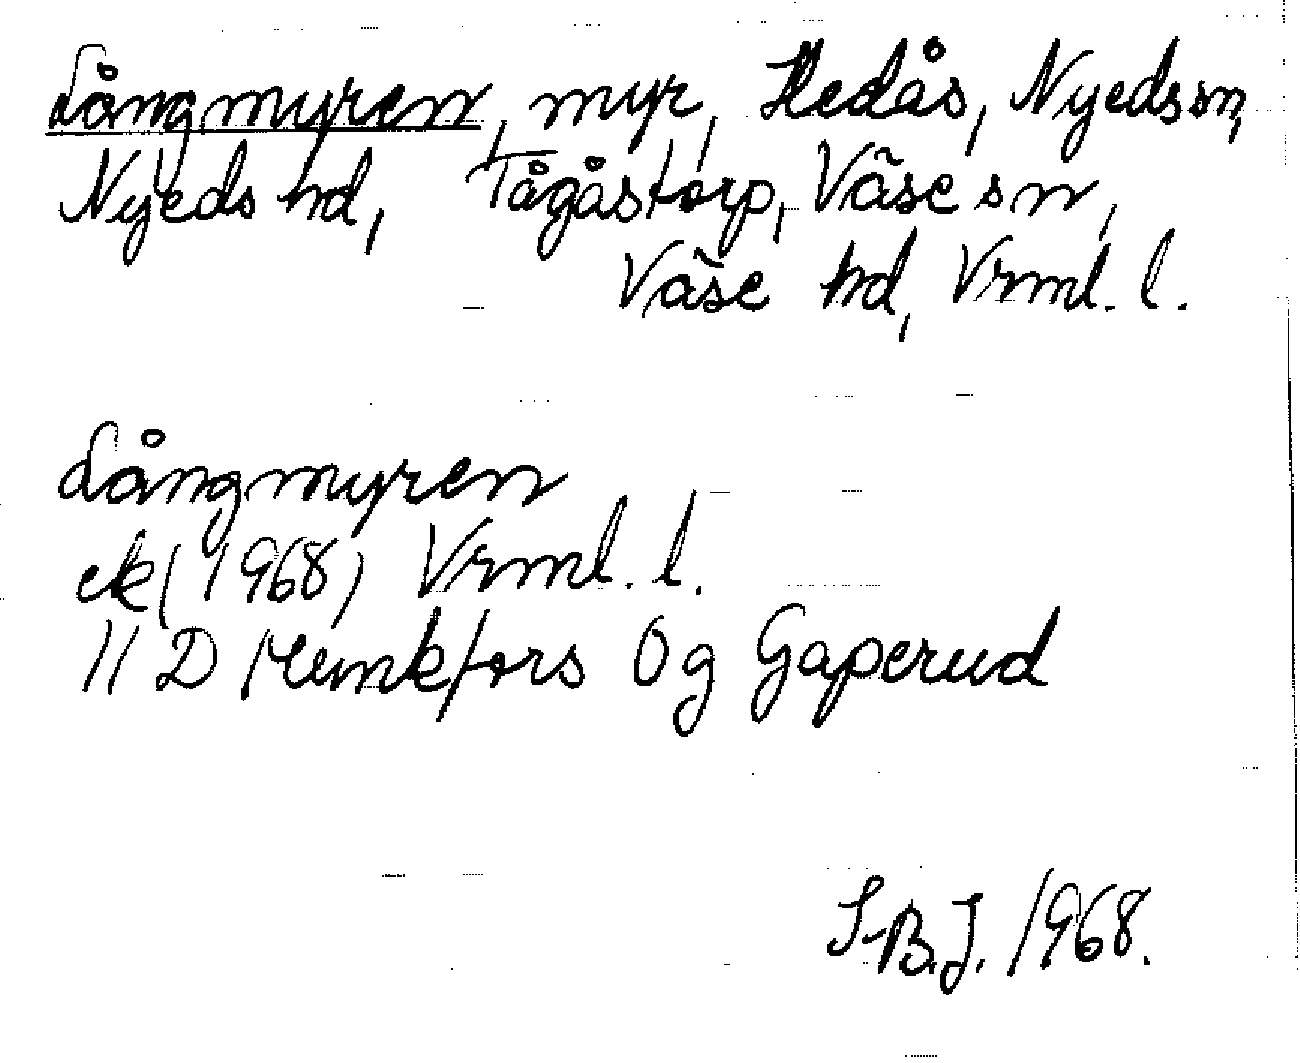 Långmyren, myr, Hedås, Nyeds sn,
Nyeds hd, Tågåstorp, Väse sn,
Väse hd, Vrml. l.
Långmyren
ek (1968) Vrml. l.
11 D Munkfors 0 g Gaperud
S-B.J. 1968.